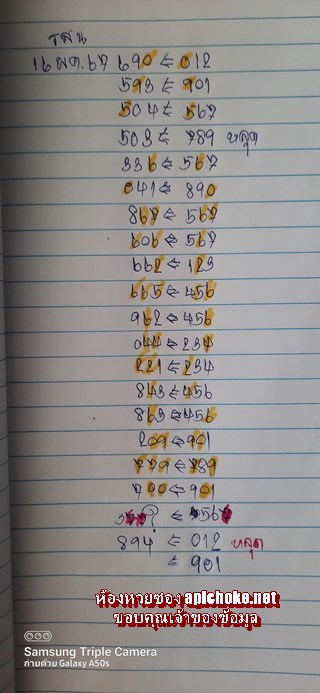 รสน
16 พค. 67 690 ⩽ 012
593 ⩽ 901
504 ⩽ 567
503 ⩽ 789 หลุด
336 ⩽ 567
041 ⩽ 890
867 ⩽ 567
606 ⩽ 567
662 ⩽ 123
665 ⩽ 456
962 ⩽ 456
044 ⩽ 234
221 ⩽ 234
843 ⩽ 456
863 ⩽ 456
209 ⩽ 901
779 ⩽ 789
790 ⩽ 901
⩽ 567
894 ⩽ 012 หลุด
⩽ 901
ห้องหวยซอง apichoke.net
ขอบคุณเจ้าของข้อมูล
Samsung Triple Camera
ถ่ายด้วย Galaxy A50s